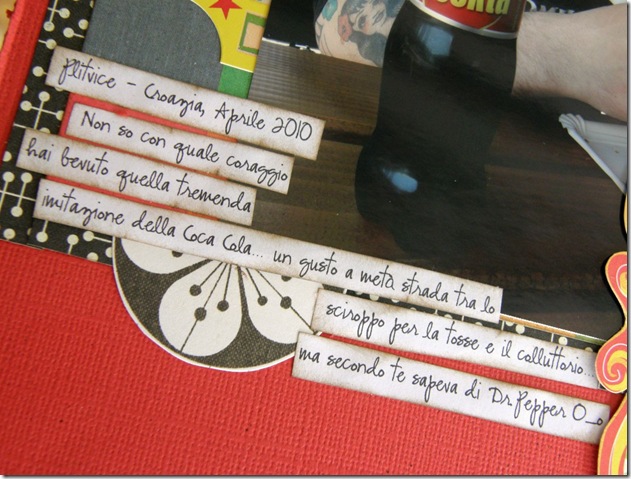 Plitvice - Croazia, Aprile 2010
Non so con quale coraggio
hai bevuto quella tremenda
imitazione della Coca Cola... un gusto a metà strada tra lo
sciroppo per la tosse e il colluttorio...
ma secondo te sapeva di Dr.Pepper O_o